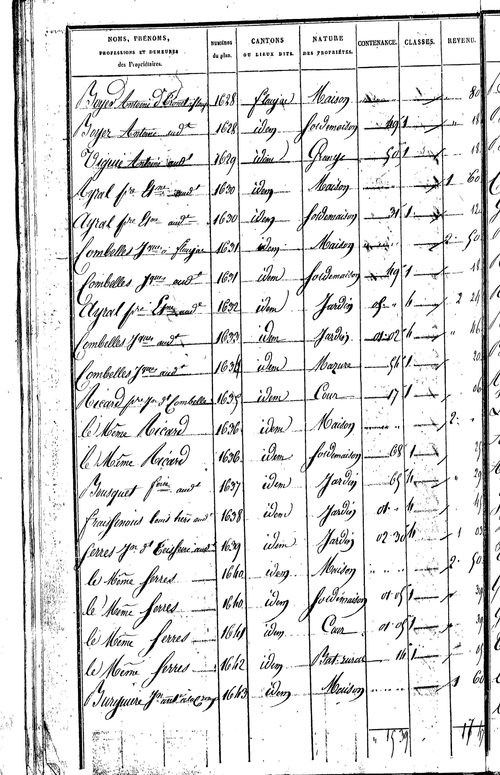 NOMS, PRÉNOMS, PROFESSIONS ET DEMEURES des Propriétaires. NUMÉROS du plan. CANTONS OU LIEUX DITS. NATURE DES PROPRIÉTÉS. CONTENANCE. CLASSES. REVENU.
Boyer Antoine 1628 flaujac Maison 80
Boyer Antoine aud.t 1628 idem Sol de maison 49 1 18
Antoine aud.t 1629 idem Grange 50 1 18
Ayral p.re Et.ne aud.t 1630 idem Maison 1 60
Ayral p.re Et.ne aud.t 1630 idem Sol de maison 31 1 12
Combelles J.ques à flaujac 1631 idem Maison 2 50
Combelles J.ques aud.t 1631 idem Sol de maison 49 1 18
Ayral p.re Et.ne aud.t 1632 idem Jardin 4 2 24
Combelles J.ques aud.t 1633 idem Jardin 01 02 4 46
Combelles J.ques aud.t 1634 idem Mazure 54 1 20
Ricard p.re J.n d.t Combelles 1635 idem Cour 17 1 06
le Même Ricard 1636 idem Maison 2
le Même Ricard 1636 idem Sol de maison 68 1 25
Bousquet aud.t 1637 idem Jardin 65 4 29
1638 idem Jardin 01 4 45
Serres J.n d.t aud.t 1639 idem Jardin 02 30 4 1 03
le Même Serres 1640 idem Maison 2 50
le Même Serres 1640 idem Sol de maison 01 05 1 39
le Même Serres 1641 idem Cour 01 05 1 39
le Même Serres 1642 idem 14 1 05
Burguiere J.n 1643 idem Maison 1 60
15 39 17